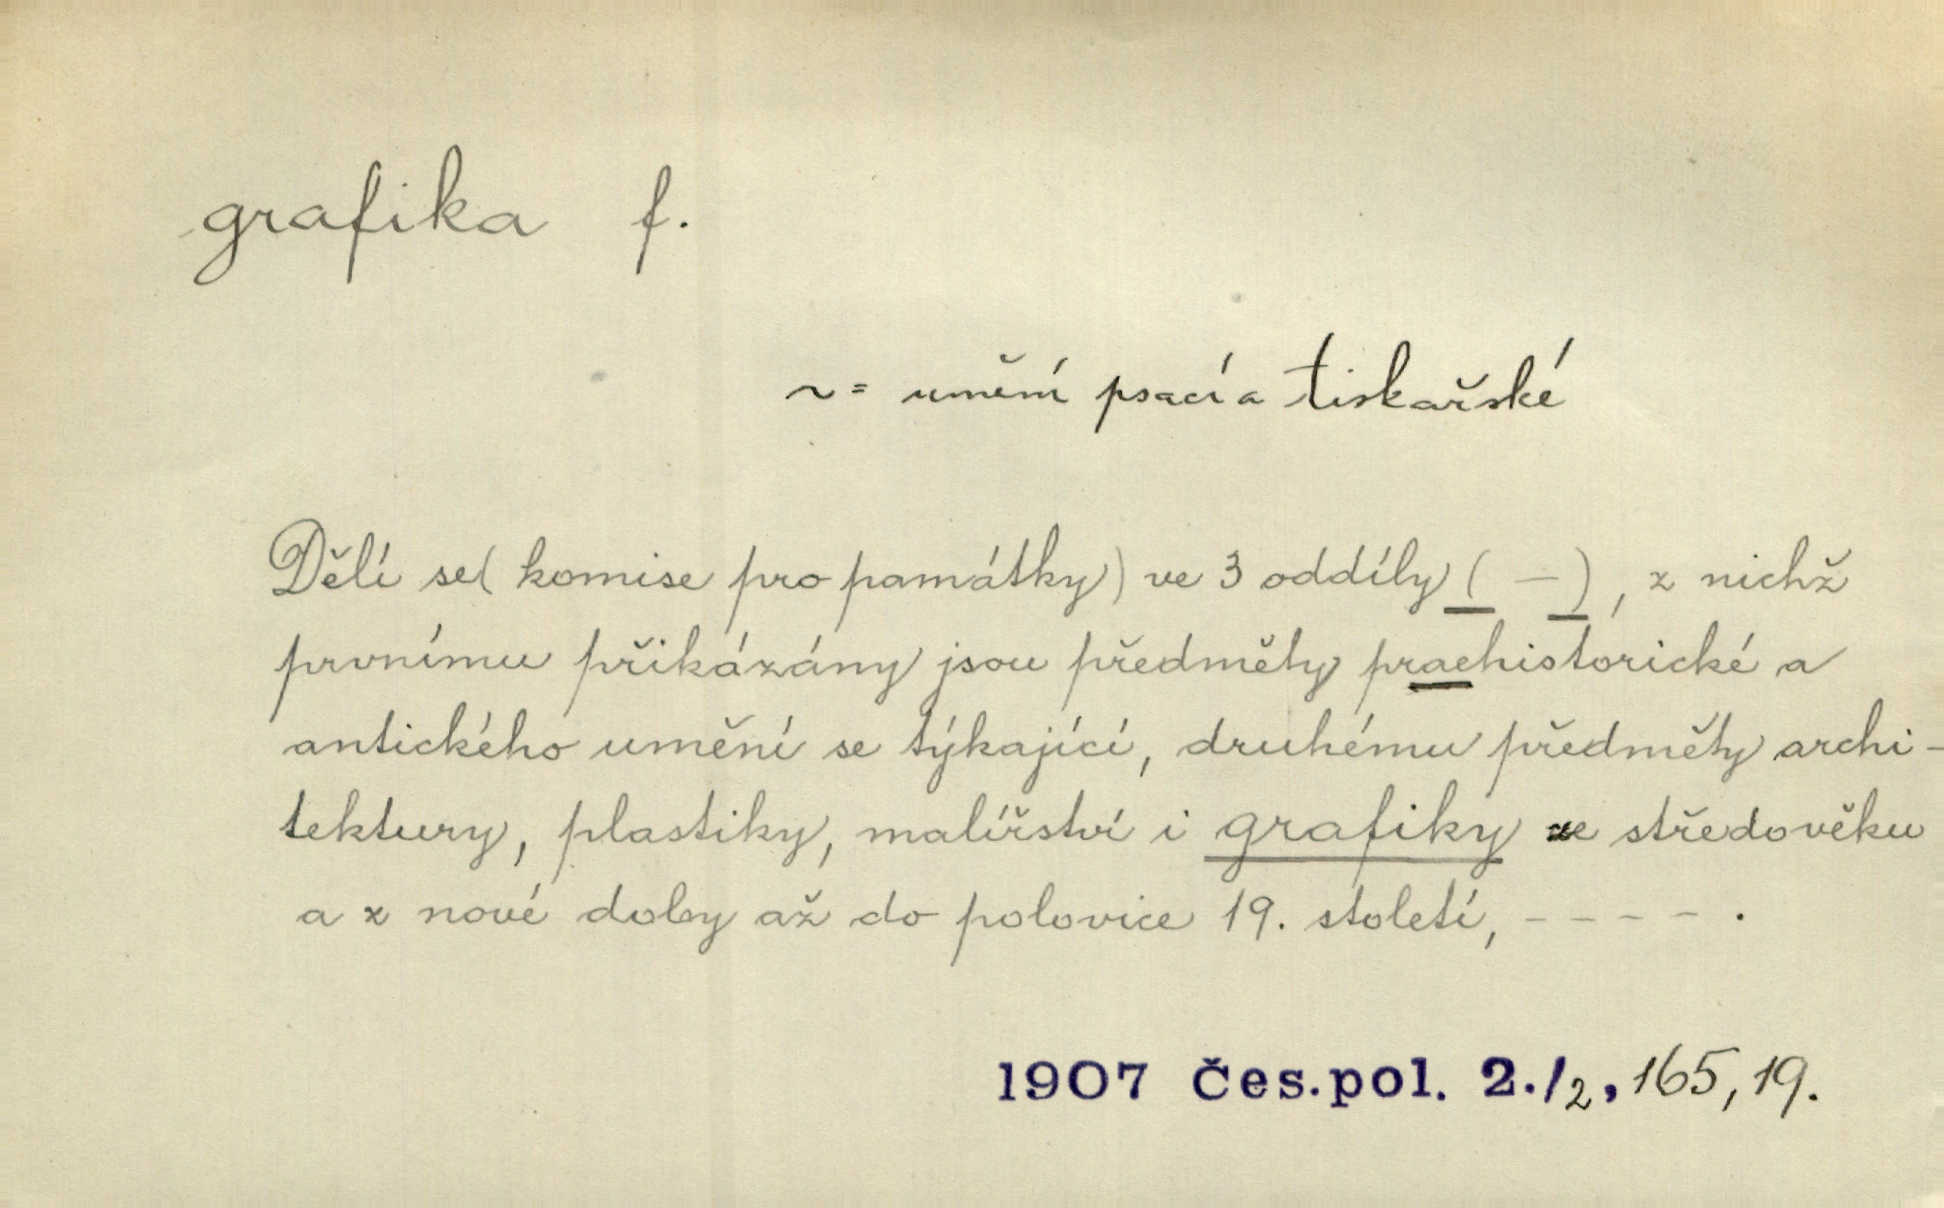 grafika f.
~ = umění psací a tiskařské
Dělí se (komise pro památky) ve 3 oddíly ( — ), z nichž
prvnímu přikázány jsou předměty praehistorické a
antického umění se týkající, druhému předměty archi-
tektury, plastiky, malířství i grafiky ze středověku
a z nové doby až do polovice 19. století, - - - - .
1907 Čes. pol. 2./2, 165, 19.